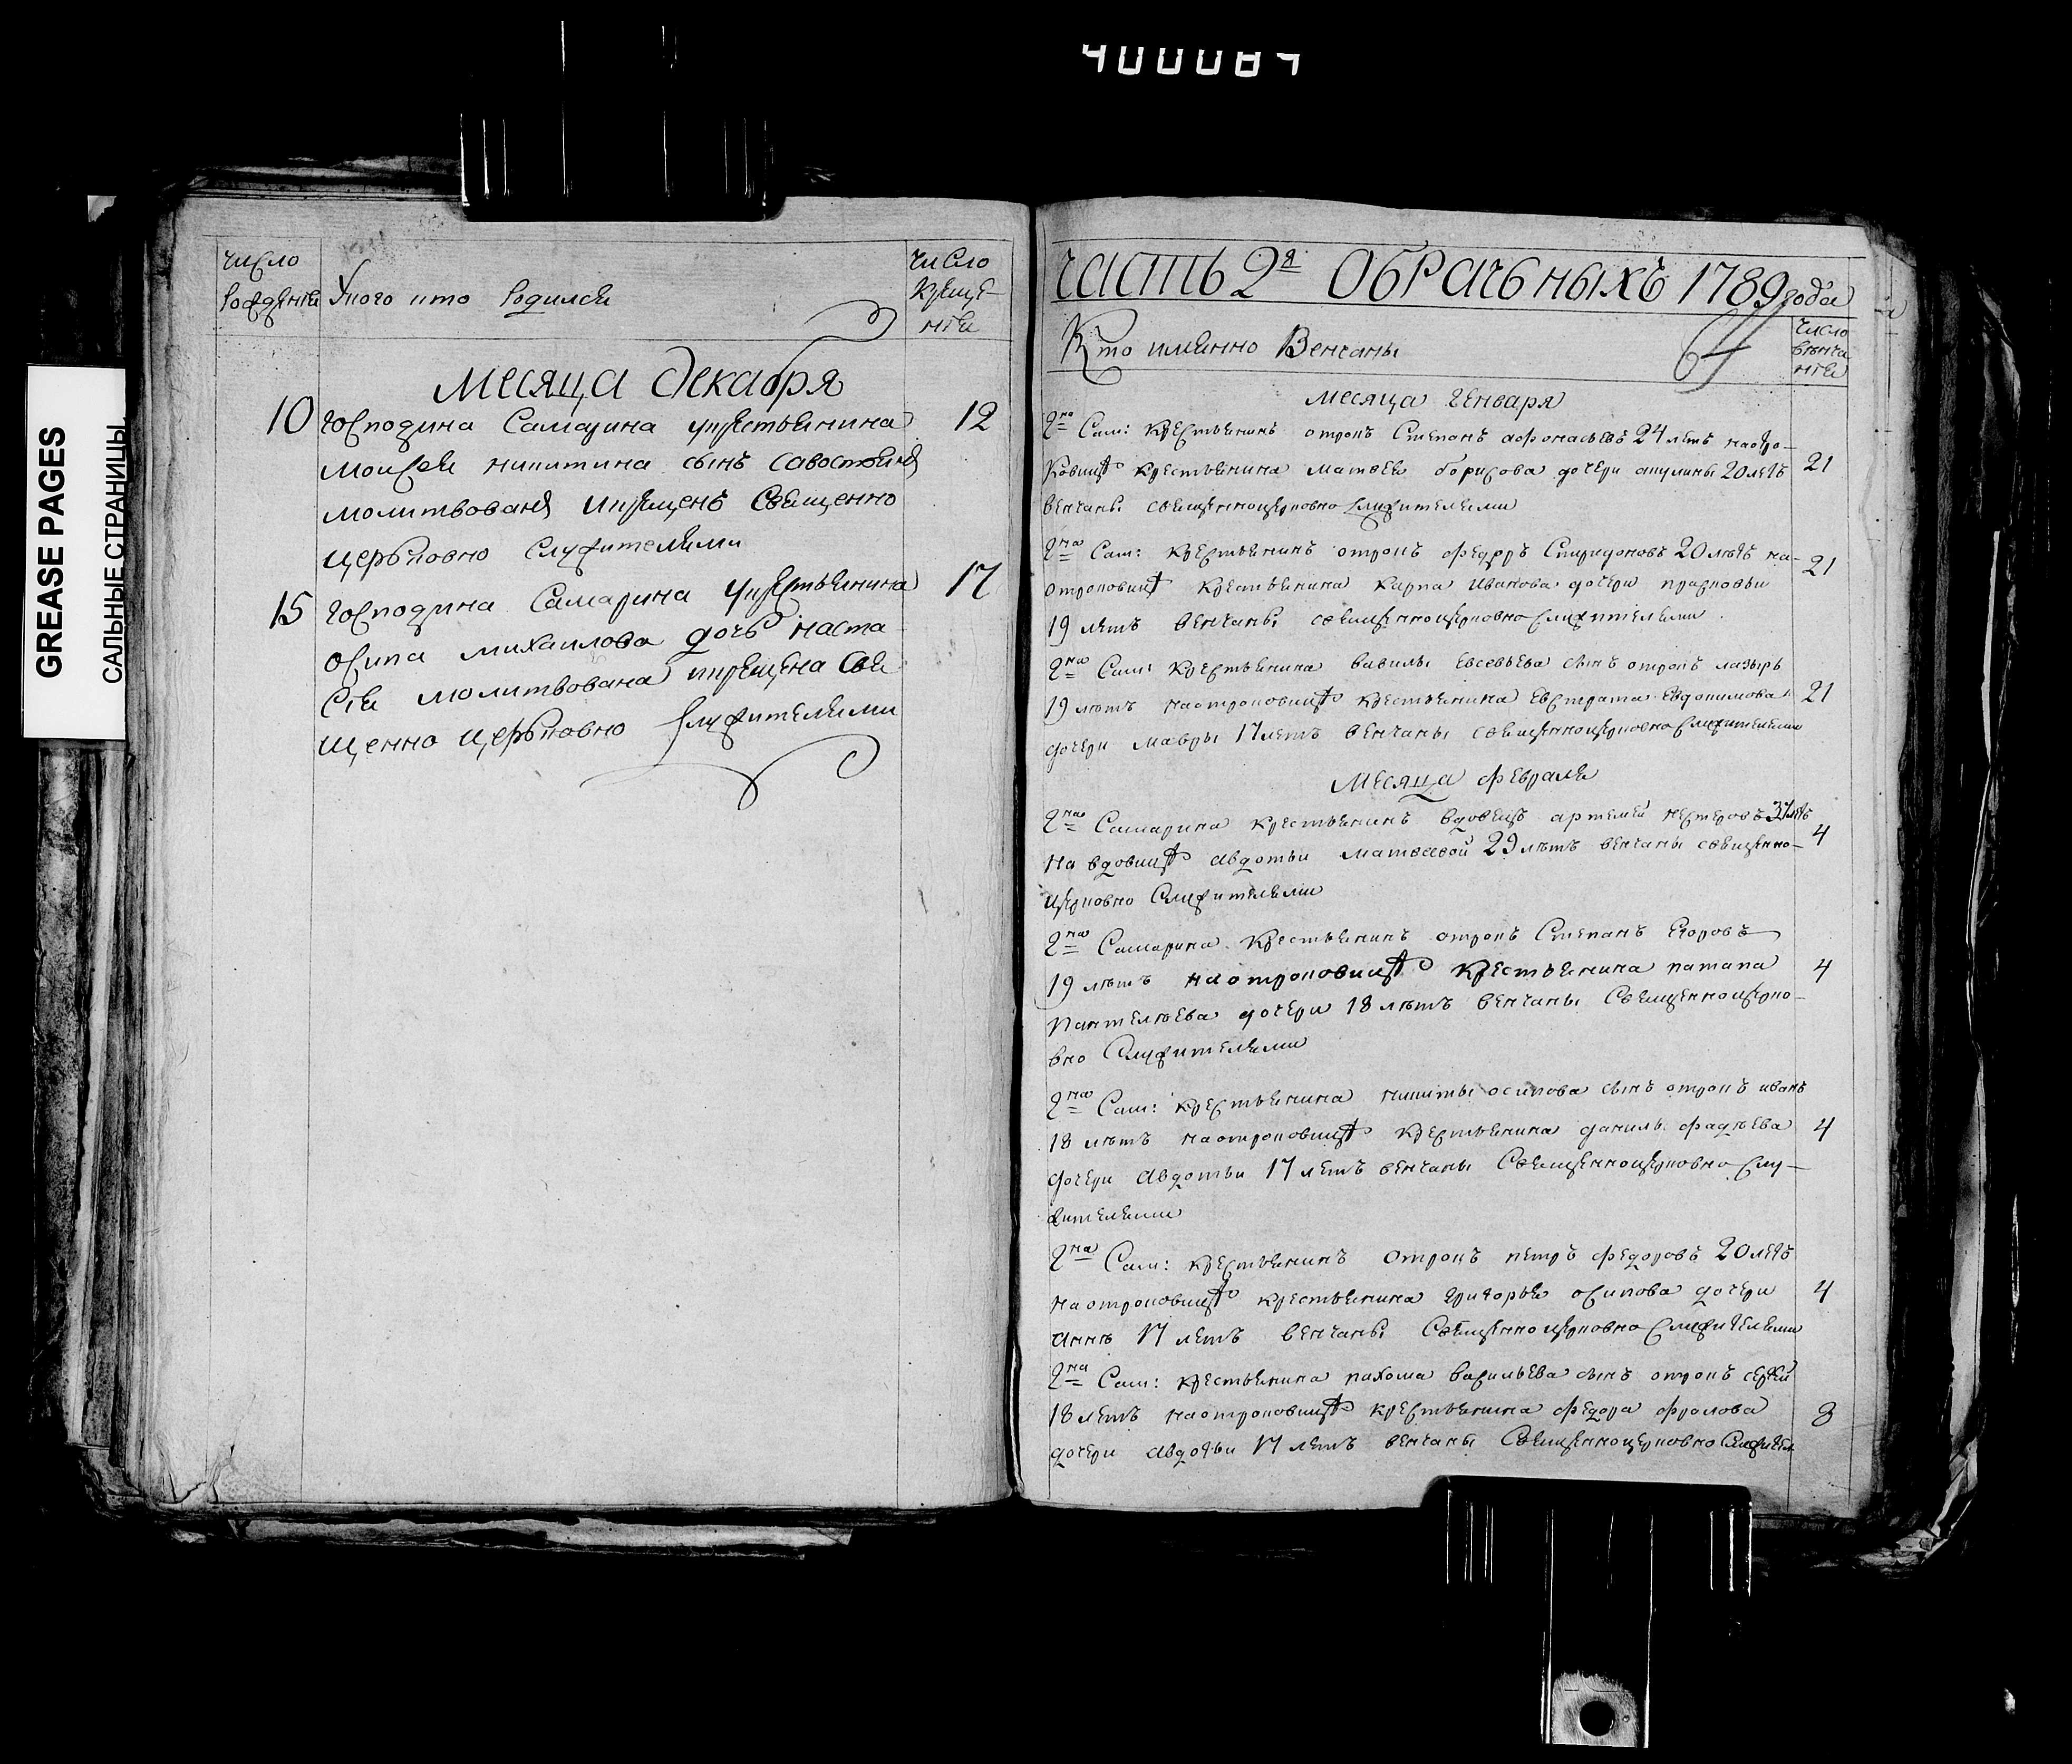 400084
GREASE PAGES
САЛЬНЫЕ СТРАНИЦЫ
число рожденiя
Укого кто родился
число крещенiя
месяца декабря
10 господина Самарина укрестьянина 12
моисея никитина сынъ савостьянъ
молитвованъ икрещенъ Священно
церьковно служителями
15 господина Самарина укрестьянина 17
осипа михаилова дочь наста
сiя молитвована икрещена Свя
щенно церьковно служителями
часть 2я обрачьныхъ 1789 года
64
Кто имянно Венчаны
число венчанiя
месяца генваря
Гна Сам: крестьянинъ отрокъ Степанъ афонасьевъ 24 летъ наотро-
ковицѣ крестьянина матвея борисова дочери акулины 20 летъ 21
венчаны священноцерковно служителями
Гна Сам: крестьянинъ отрокъ федоръ Спиридоновъ 20 летъ на-
отроковицѣ крестьянина карпа иванова дочери прасковьи 21
19 летъ венчаны священноцерковно служителями
Гна Сам: крестьянина вавилы евсевьева сынъ отрокъ лазырь
19 летъ наотроковицѣ крестьянина евстрата евдокимова 21
дочери мавры 17 летъ венчаны священноцерковно служителями
Месяца февраля
Гна Самарина крестьянинъ вдовецъ артемей нестеровъ 37 летъ
на вдовицѣ авдотьи матвеевой 29 летъ венчаны священно- 4
церковно служителями
Гна Самарина крестьянинъ отрокъ Степанъ Егоровъ
19 летъ наотроковицѣ крестьянина патапа 4
пантелѣева дочери 18 летъ венчаны Священноцерко-
вно Служителями
Гна Сам: крестьянина никиты осипова сынъ отрокъ иванъ
18 летъ наотроковицѣ крестьянина данилы фадѣева 4
дочери авдотьи 17 летъ венчаны Священноцерковно слу-
жителями
Гна Сам: крестьянинъ отрокъ петръ федоровъ 20 летъ
наотроковицѣ крестьянина григорья осипова дочери 4
аннѣ 17 летъ венчаны Священноцерковно служителями
Гна Сам: крестьянина пахома васильева сынъ отрокъ сергей
18 летъ наотроковицѣ крестьянина федора фролова 8
дочери авдотьи 17 летъ венчаны Священноцерковно служител